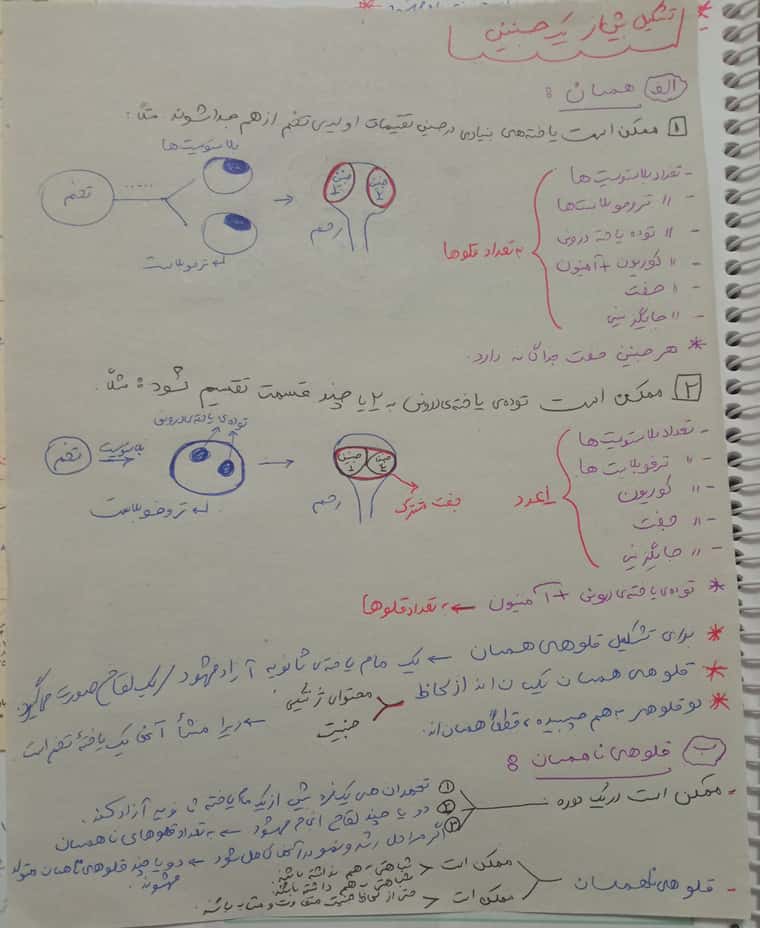 * تشکیل بیش از یک جنین
الف همسان :
1 ممکن است یاخته‌های بنیادی در حین تقسیمات اولیه‌ی تخم از هم جدا شوند. مثلاً :
تخم
بلاستوسیت‌ها
تروفوبلاست
جنین ۱
جنین ۲
رحم
- تعداد بلاستوسیت‌ها
- " تروفوبلاست‌ها
- " توده یاخته درونی
- " کوریون + آمنیون
- " جفت
- " جایگزینی
به تعداد قلوها
* هر جنین جفت جداگانه دارد.
۲ ممکن است توده‌ی یاخته‌ی درونی به ۲ یا چند قسمت تقسیم شود : مثلاً
تخم
بلاستوسیت
توده‌ی یاخته‌ی درونی
تروفوبلاست
جنین ۱
جنین ۲
رحم
جفت مشترک
- تعداد بلاستوسیت‌ها
- " تروفوبلاست ها
- " کوریون
- " جفت
- " جایگزینی
۱ عدد
* توده‌ی یاخته‌ی درونی + آمنیون ← به تعداد قلوها
* برای تشکیل قلوهای همسان ← یک مام یاخته‌ی ثانویه آزاد می‌شود / یک لقاح صورت می‌گیرد.
* قلوهای همسان یکسان‌اند از لحاظ محتوای ژنتیکی جنسیت ← زیرا منشأ آنها یک یاختهٔ تخم است
* دوقلوهای به هم چسبیده، قطعاً همسان‌اند.
ب قلوهای ناهمسان :
- ممکن است در یک دوره
① تخمدان های یک فرد بیش از یک مام‌یاخته ثانویه آزاد کند.
② دو یا چند لقاح انجام می‌شود ← به تعداد قلوهای ناهمسان
③ اگر مراحل رشد و نمو در آنها کامل شود ← دو یا چند قلوهای ناهمسان متولد می‌شوند.
- قلوهای ناهمسان
ممکن است
شباهتی به هم نداشته باشند
شباهتی به هم داشته باشند
ممکن است
حتی از لحاظ جنسیت متفاوت و مشابه باشند.